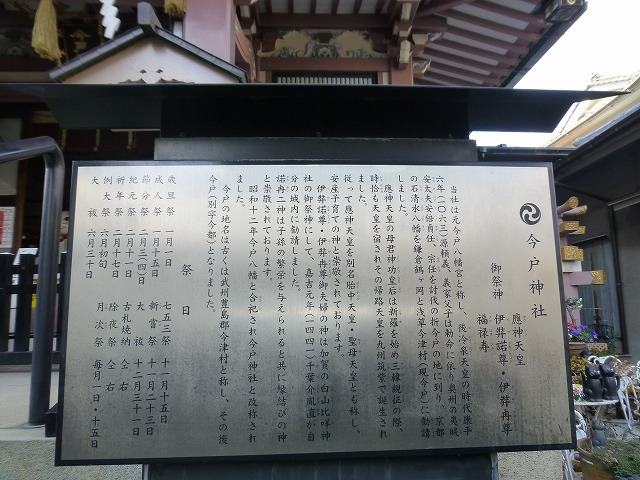 今戸神社
御祭神
應神天皇
伊弉諾尊・伊弉冉尊
福禄寿
当社は元今戸八幡宮と称し、後冷泉天皇の時代康平
六年(一〇六三)源頼義、義家父子は勅命に依り奥州の夷賊
安太夫安倍貞任、宗任を討伐の折今戸の地に到り、京都
の石清水八幡を鎌倉鶴ヶ岡と浅草今津村(現今戸)に勧請
しました。
應神天皇の母君神功皇后は新羅を始め三韓親征の際、
時恰も天皇を宿されその帰路天皇を九州筑紫で誕生され
ました。
従って應神天皇を別名胎中天皇・聖母天皇とも称し、
安産子育ての神と崇敬されております。
伊弉諾尊、伊弉冉尊御夫婦の神は加賀の白山比咩神
社の御祭神にして、嘉吉元年(一四四一)千葉介胤直が自
分の城内に勧請しました。
諾冉二神は子孫の繁栄を与えられると共に縁結びの神
と崇敬されております。
昭和十二年今戸八幡と合祀され今戸神社と改称され
ました。
今戸の地名は古くは武州豊島郡今津村と称し、その後
今戸(別字今都)となりました。
祭日
歳旦祭 一月一日
成人祭 一月十五日
節分祭 二月三・四日
紀元祭 二月十一日
祈年祭 二月十七日
例大祭 六月初旬
大祓 六月三十日
七五三祭 十一月十五日
新嘗祭 十一月二十三日
大祓 十二月三十一日
古札焼納 仝右
除夜祭 仝右
月次祭 毎月一日・十五日